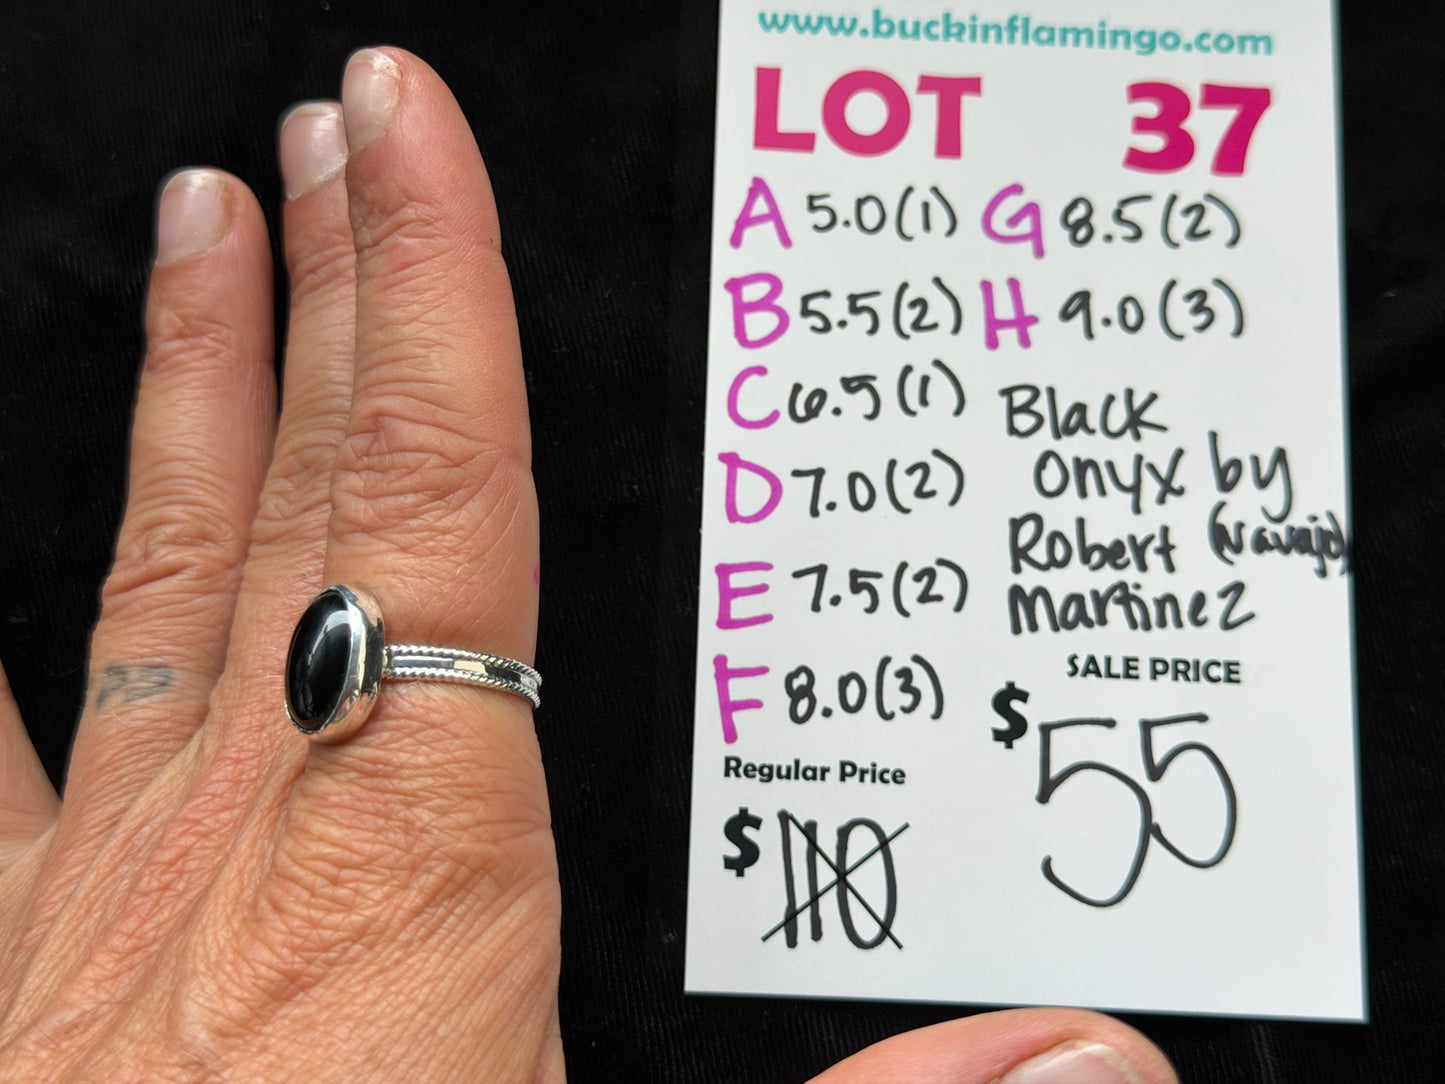 www.buckinflamingo.com
LOT 37
A 5.0(1) G 8.5(2)
B 5.5(2) H 9.0(3)
C 6.5(1)
D 7.0(2)
E 7.5(2)
F 8.0(3)
Black
onyx by
Robert (Navajo)
Martinez
SALE PRICE
$55
Regular Price
$110